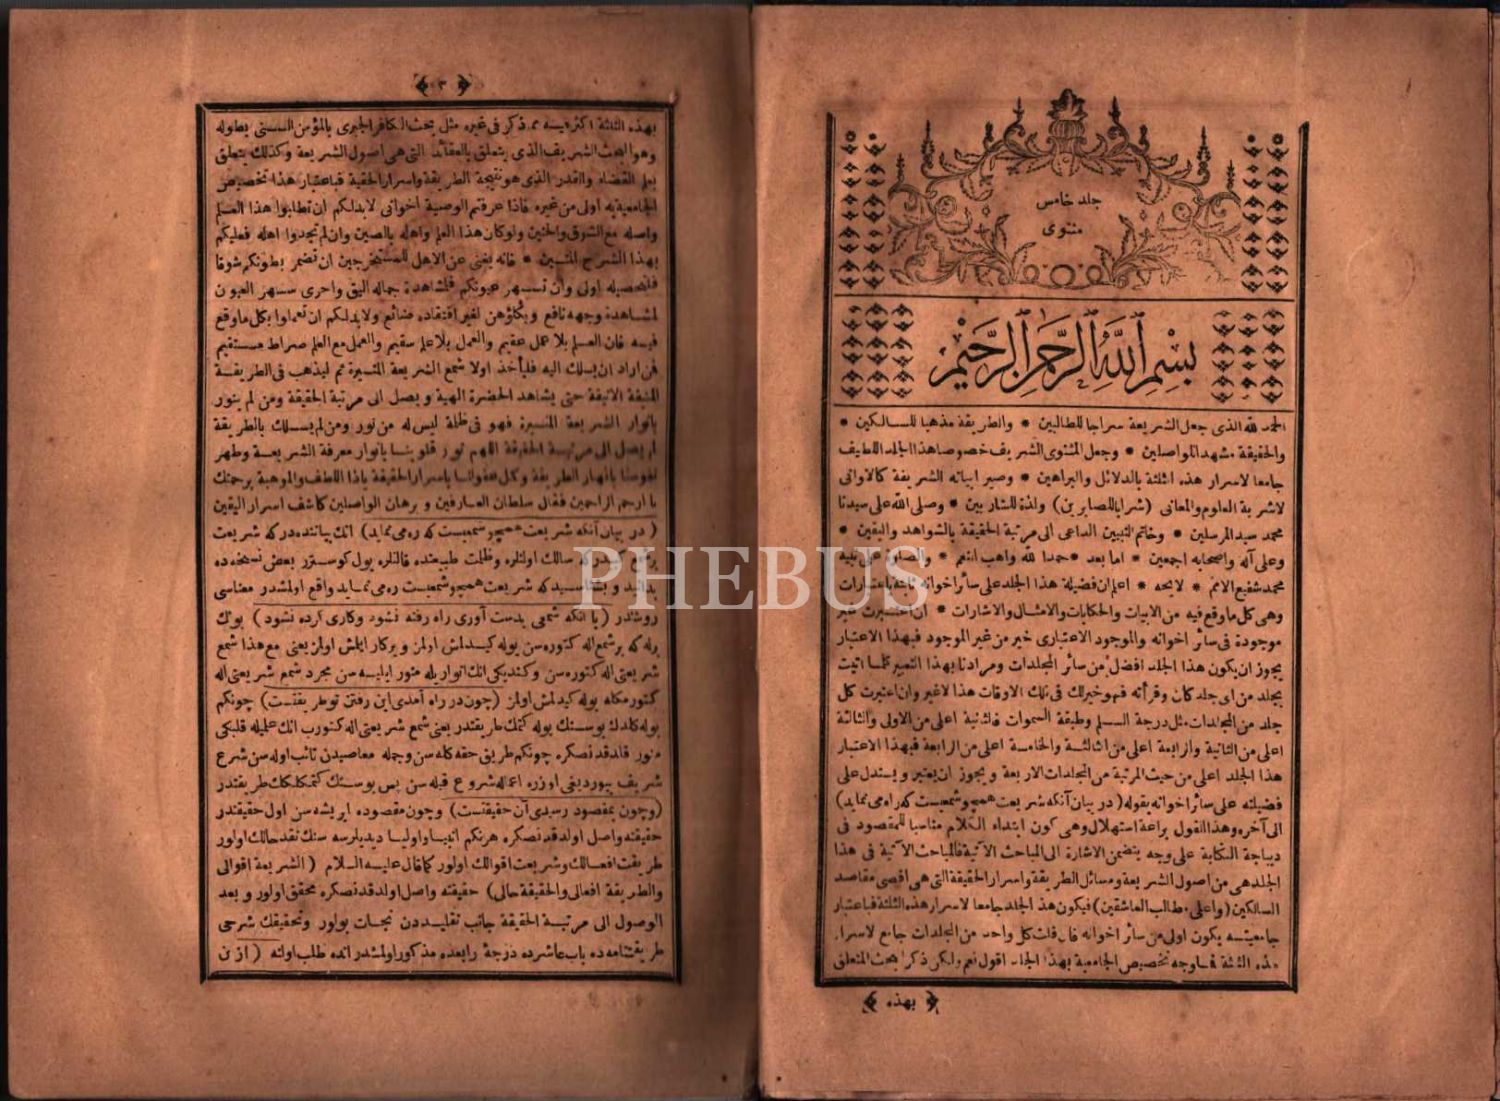 جلد خامس
مثنوى
بسم الله الرحمن الرحيم
الحمد لله الذى جعل الشريعة سراجا للطالبين * والطريقة مذهبا للسالكين *
والحقيقة مشهدا للواصلين * وجعل المثنوى الشريف خصوصا هذا الجلد اللطيف
جامعا لاسرار هذه الثلثة بالدلائل والبراهين * وصير ابياته الشريفة كالاوانى
لاشربة العلوم والمعانى (شرابا للصابرين) ولذة للشاربين * وصلى الله على سيدنا
محمد سيد المرسلين * وخاتم النبيين الداعى الى مرتبة الحقيقة بالشواهد واليقين *
وعلى آله واصحابه اجمعين * اما بعد * حمدا لله واهب النعم * والصلوة على نبيه
محمد شفيع الامم * لايحه * اعلم ان فضيلة هذا الجلد على سائر اخوانه ثابتة باعتبارات
وهى كل ما وقع فيه من الابيات والحكايات والامثال والاشارات * ان اعتبرت غير
موجودة فى سائر اخوانه والموجود الاعتبارى خير من غير الموجود فبهذا الاعتبار
يجوز ان يكون هذا الجلد افضل من سائر المجلدات ومرادنا بهذا التعبير كلما اتيت
بجلد من اى جلد كان وقرأته فهو خير لك فى تلك الاوقات هذا لا غير وان اعتبرت كل
جلد من المجلدات مثل درجة السلم وطبقة السموات فالثانية اعلى من الاولى والثالثة
اعلى من الثانية والرابعة اعلى من الثالثة والخامسة اعلى من الرابعة فبهذا الاعتبار
هذا الجلد اعلى من حيث المرتبة من المجلدات الاربعة ويجوز ان يعتبر ويستدل على
فضيلته على سائر اخوانه بقوله (در بيان آنكه شريعت همچو شمعيست كه ره مى نمايد)
الى آخره وهذا القول براعة استهلال وهى كون ابتداء الكلام مناسبا للمقصود فى
ديباجة الكتابة على وجه يتضمن الاشارة الى المباحث الآتية فالمباحث الآتية فى هذا
الجلد هى من اصول الشريعة ومسائل الطريقة واسرار الحقيقة التى هى اقصى مقاصد
السالكين (واعلى مطالب العاشقين) فيكون هذ الجلد جامعا لاسرار هذه الثلثة فباعتبار
جامعيته يكون اولى من سائر اخوانه فان قلت كل واحد من المجلدات جامع لاسرار
هذه الثلثة فما وجه تخصيص الجامعية بهذا الجلد اقول نعم ولكن ذكر ابحث المتعلق
بهذه
٣
بهذه الثالثة اكثر فيه مما ذكر فى غيره مثل بحث الكافر الجبرى بالمؤمن السنى بطوله
وهو البحث الشريف الذى يتعلق بالعقائد التى هى اصول الشريعة وكذلك يتعلق
بعلم القضاء والقدر الذى هو نتيجة الطريقة واسرار الحقيقة فباعتبار هذا تخصيص
الجامعية به اولى من غيره فاذا عرفتم الوصية اخوانى لابد لكم ان تطلبوا هذا العلم
واصله مع الشوق والحنين ولو كان هذا العلم واهله بالصين وان لم تجدوا اهله فعليكم
بهذا الشرح المتين * فانه يغنى عن الاهل للمستخرجين ان تضمر بطونكم شوقا
فلتحصيله اولى وان تسهر عيونكم فلمشاهدة جماله اليق واحرى سهر العيون
لمشاهدة وجهه نافع وبكاؤهن لغير افتقاده ضائع ولابد لكم ان تعملوا بكل ما وقع
فيه فان العلم بلا عمل عقيم والعمل بلا علم سقيم والعمل مع العلم صراط مستقيم
فمن اراد ان يسلك اليه فليأخذ اولا شمع الشريعة المنيرة ثم ليذهب فى الطريقة
المنيفة الانيقة حتى يشاهد الحضرة الهية ويصل الى مرتبة الحقيقة ومن لم ينور
بانوار الشريعة المنيرة فهو فى ظلمة ليس له من نور ومن لم يسلك بالطريقة
لم يصل الى مرتبة الحقيقة اللهم نور قلوبنا بانوار معرفة الشريعة وطهر
نفوسنا بانهار الطريقة وكمل عقولنا باسرار الحقيقة ياذا اللطف والموهبة برحمتك
يا ارحم الراحمين فقال سلطان العارفين وبرهان الواصلين كاشف اسرار اليقين
(در بيان آنكه شريعت همچو شمعيست كه ره مى نمايد) انك بياننده در كه شريعت
سالك اولنلره وظلمت طبيعتده قالنلره يول كوسترر بعض نسخه ده
بدانيد كه شريعت همچو شمعيست ره مى نمايد واقع اولمشدر معناسى
روشندر (با آنكه شمعى بدست آورى راه رفته نشود وكارى كرده نشود) بونك
يله كه بر شمع اله كتوره سن يوله كيدلمش اولمز وبر كار ايلمش اولمز يعنى مع هذا شمع
شريعتى اله كتوره سن وكنديكى انك انواريله منور ايليه سن مجرد شمع شريعتى اله
كتورمكله يوله كيدلمش اولمز (چون در راه آمدى اين رفتن تو طريقتست) چونكم
يوله كلدك بو سنك يوله كتمك طريقتدر يعنى شمع شريعتى اله كتورب انك علميله قلبكى
منور قلدقدنصكره چونكم طريق حقه كله سن وجمله معاصيدن تائب اوله سن شرع
شريف بيورديغى اوزره اعماله شروع قيله سن پس بو سنك كتمكلكك طريقتدر
(وچون بمقصود رسيدى آن حقيقتست) وچون مقصوده ايريشه سن اول حقيقتدر
حقيقته واصل اولدقدنصكره هر نكم انبيا واوليا ديديلرسه سنك نقد حالك اولور
طريقت افعالك وشريعت اقوالك اولور كما قال عليه السلام (الشريعة اقوالى
والطريقة افعالى والحقيقة حالى) حقيقته واصل اولدقدنصكره محقق اولور وبعد
الوصول الى مرتبة الحقيقة جانب تقليددن نجات بولور وتحقيقك شرحى
طريقتنامه ده باب عاشرده درجۀ رابعده مذكور اولمشدر انده طلب اولنه (از ن
PHEBUS